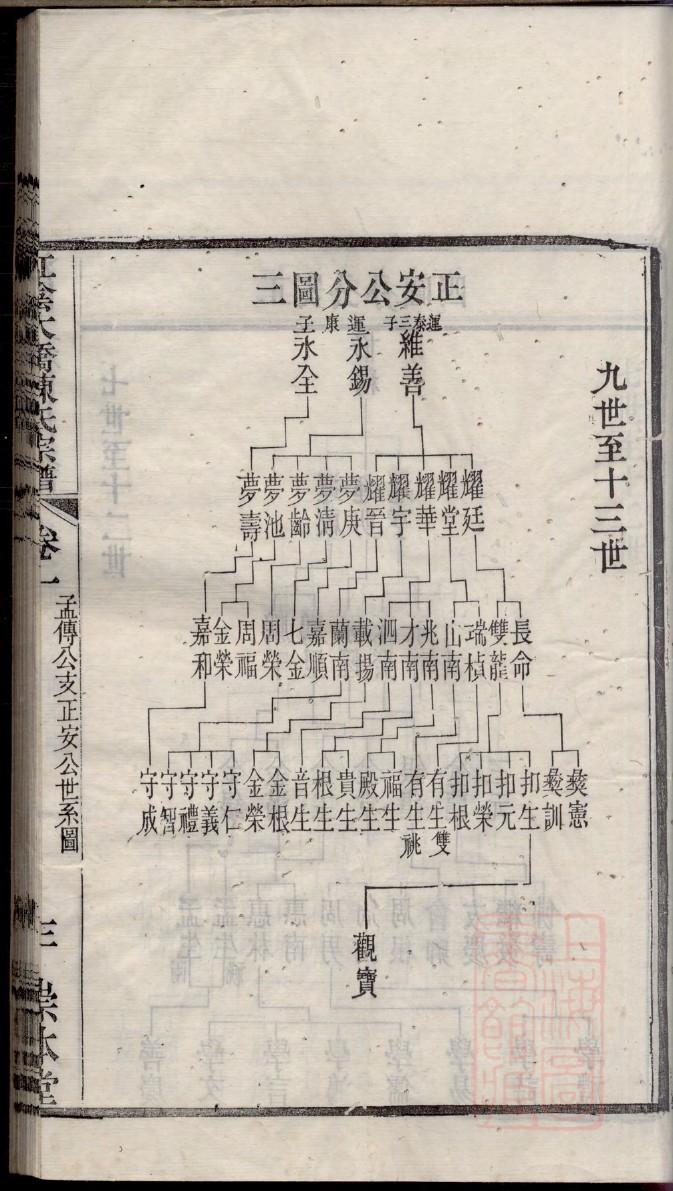 正安公分圖三
九世至十三世
運泰三子
維善
運康子
永錫
永全
耀廷
耀堂
耀華
耀宇
耀晉
夢庚
夢清
夢齡
夢池
夢壽
長命
雙龍
瑞楨
山南
兆南
才南
泗南
載揚
蘭南
嘉順
七金
周榮
周福
金榮
嘉和
燊憲
燊訓
扣生
扣元
扣榮
扣根
有生雙
有生祧
福生
殿生
貴生
根生
音生
金根
金榮
守仁
守義
守禮
守智
守成
觀寶
江陰大橋陳氏宗譜
卷一
孟傳公支正安公世系圖
三
崇本堂